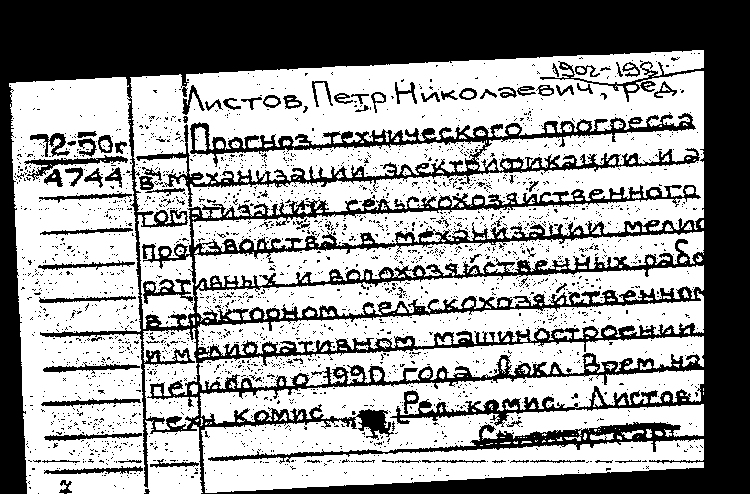 1902-1981
Листов, Петр Николаевич, ред.
72-50г Прогноз технического прогресса
4744 в механизации электрификации и ав
томатизации сельскохозяйственного
производства, в механизации мелио
ративных и водохозяйственных рабо
в тракторном, сельскохозяйственном
и мелиоративном машиностроении
период до 1990 года. Докл. Врем. на
техн. комис. Ред. комис.: Листов
См. след. карт.
7